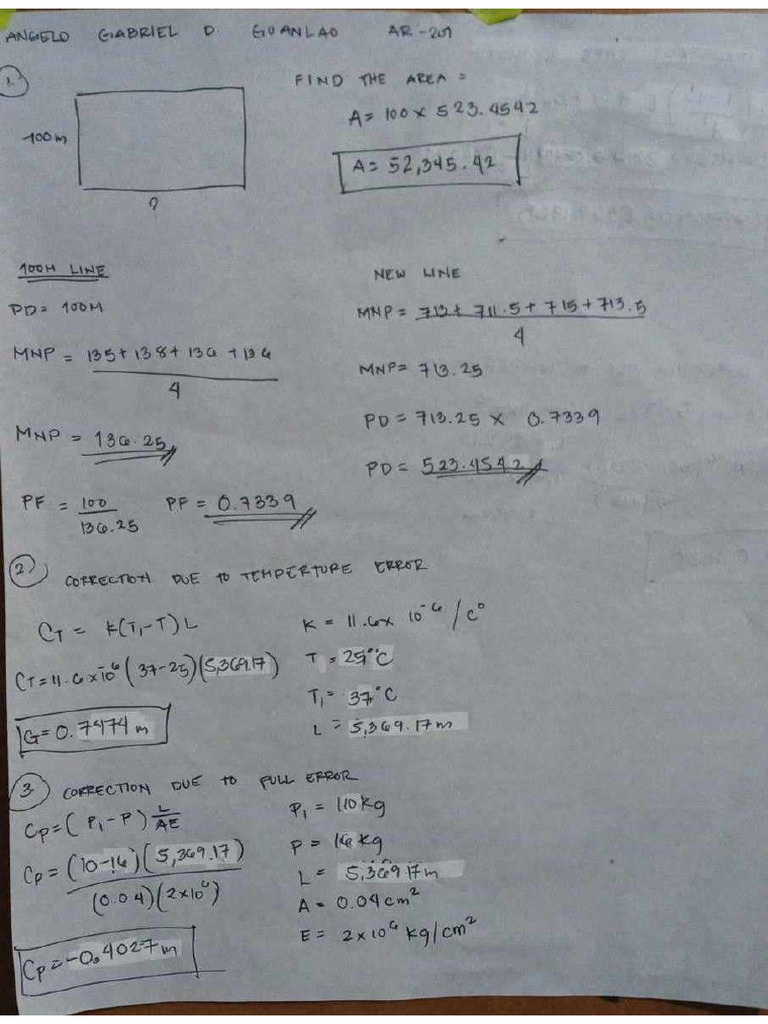 ANGELO GABRIEL D. GUANLAO AR-201
1.
FIND THE AREA =
100m
A= 100 x 523.4542
A= 52,345.42
?
100M LINE
PD= 100M
MNP = 135+138+136+136
4
MNP = 136.25
PF = 100
136.25
PF = 0.7339
NEW LINE
MNP = 713+711.5+715+713.5
4
MNP= 713.25
PD = 713.25 x 0.7339
PD= 523.4542
2) CORRECTION DUE TO TEMPERTURE ERROR
CT = K(T1-T)L
CT=11.6x10^-6(37-25)(5,369.17)
G=0.7474m
K = 11.6x 10^-6/C°
T = 25°C
T1= 37°C
L = 5,369.17m
3. CORRECTION DUE TO PULL ERROR
Cp=(P1-P) L
AE
Cp= (10-16)(5,369.17)
(0.04)(2x10^6)
Cp=-0.4027m
P1 = 110kg
P = 16kg
L = 5,369.17m
A= 0.04cm²
E= 2x10^6 kg/cm²